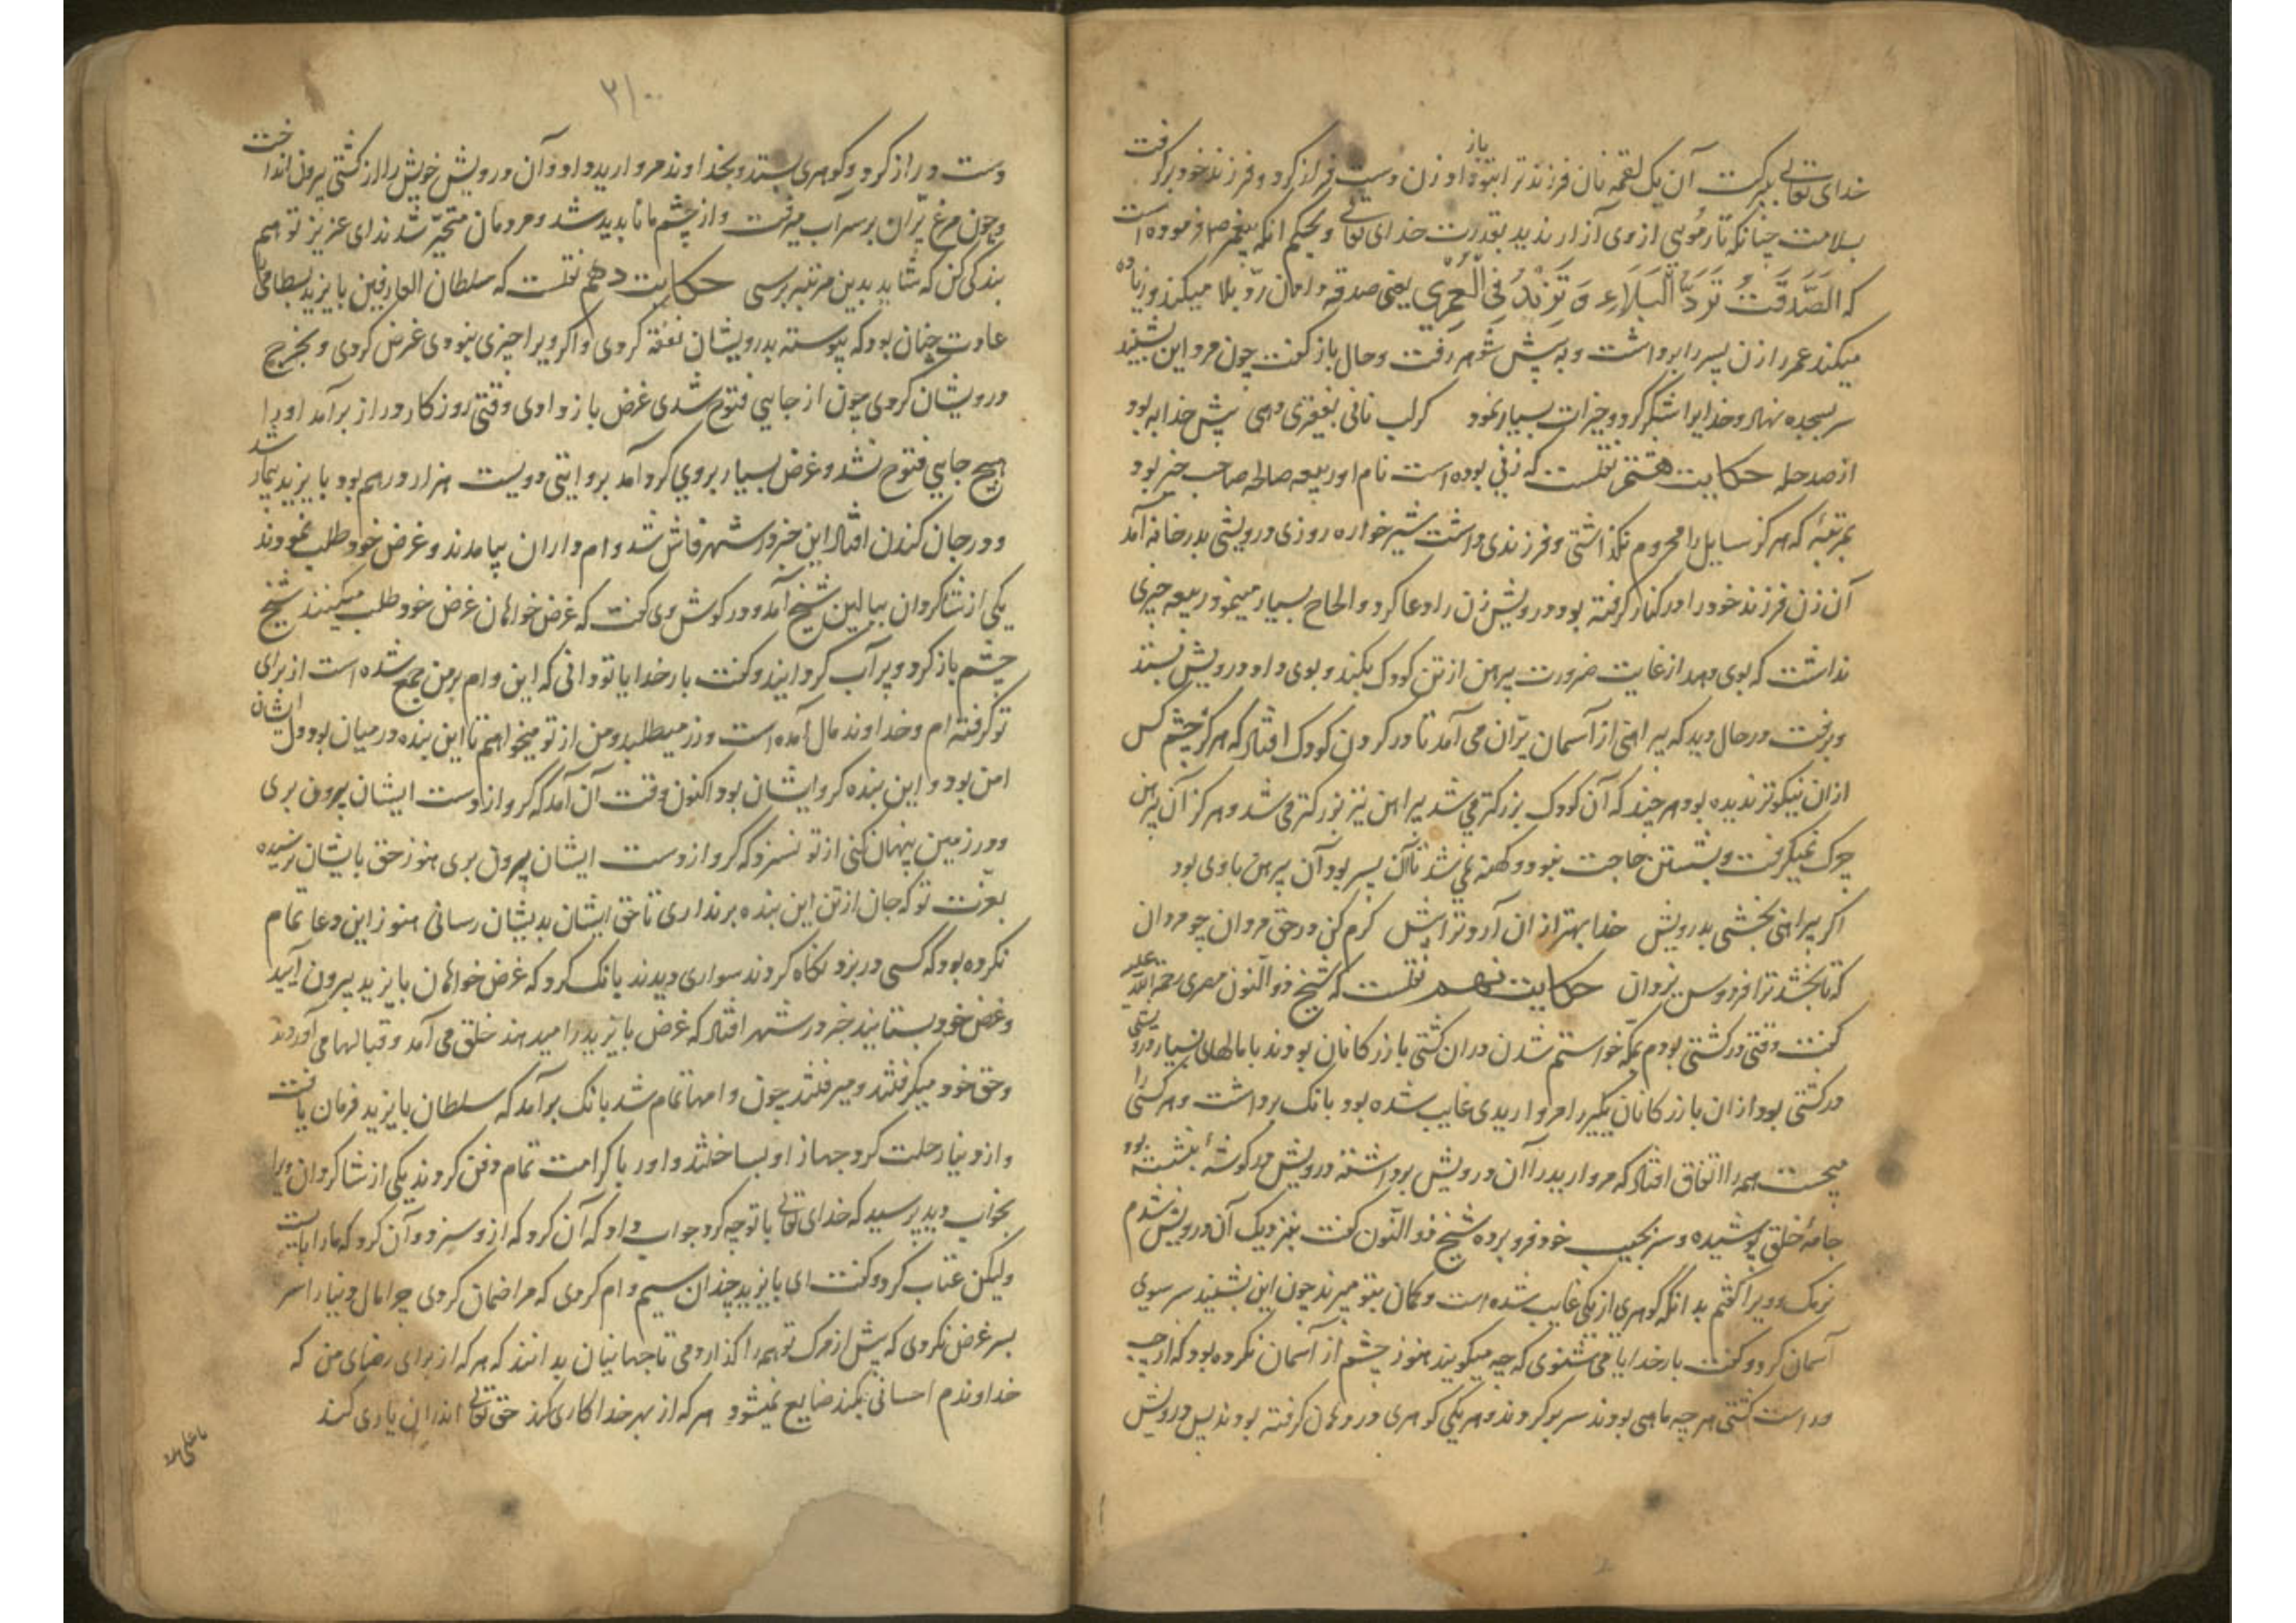 خدای تعالی ببرکت آن یک لقمه نان فرزند ترا بتو باز داد و زن دست فراز کرد و فرزند خود برگرفت
بسلامت چنانکه تار مویی از وی آزار ندید بقدرت خدای تعالی و بحکم انکه پیغمبر ص فرموده است
که الصَّدَقَتُ تَرَدُّ الْبَلَاءِ وَ تَزِیْدُ فِی الْعُمْرِی یعنی صدقه دادن ردّ بلا میکند و زیاده
میکند عمر را زن پسر را برداشت و به پیش شوهر رفت و حال باز گفت چون مرد این بشنید
سر بسجده نهاد و خدایرا شکر کرد و خیرات بسیار نمود گر لب نانی بفقیری دهی پیش خدا به بود
از صد حله حکایت هشتم نقلست که زنی بوده است نام او ربیعه صالحه صاحب خبر بود
بمرتبهٔ که هرگز سایل را محروم نگذاشتی و فرزندی داشت شیرخواره روزی درویشی بدر خانه آمد
آن زن فرزند خود را در کنار گرفته بود درویش زن را دعا کرد و الحاح بسیار مینمود ربیعه چیزی
نداشت که بوی دهد از غایت ضرورت پیرهن از تن کودک بکند و بوی داد درویش بستد
و برفت در حال دید که پیراهنی از آسمان پرّان می آمد تا در گردن کودک افتاد که هرگز چشم کس
از ان نیکوتر ندیده بود هر چند که آن کودک بزرگتر می شد پیراهن نیز بزرکتر می شد و هرگز آن پیرهن
چرک نمیگرفت و بشستن حاجت نبود و کهنه نمی شد تا آن پسر بود آن پیرهن با وی بود
اگر پیراهنی بخشی بدرویش خدا بهتر از ان آرد ترا پیش کرم کن در حق مردان چو مردان
که تا بخشد ترا فردوس یزدان حکایت نهم نقلست که شیخ ذوالنون مصری رحمة الله علیه
گفت وقتی در کشتی بودم بمکه خواستم شدن در ان کشتی بازرگانان بودند با مالهای بسیار درویشی
در کشتی بود از ان بازرگانان یکیرا مرواریدی غایب شده بود بانک برداشت و هر کسی را
میجست همه را اتفاق افتاد که مروارید را آن درویش برداشته درویش در گوشهٔ نشسته بود
جامهٔ خلق پوشیده و سر بجیب خود فرو برده شیخ ذوالنّون گفت بنزدیک آن درویش شدم
نرمک و ویرا گفتم بدانکه گوهری از یکی غایب شده است و گمان بتو میبرند چون این بشنید سر سوی
آسمان کرد و گفت بار خدایا می شنوی که چه میگویند هنوز چشم از آسمان نکرده بود که از چپ
و راست کشتی هر چه ماهی بودند سر بر کردند و هر یکی گوهری در دهان گرفته بودند پس درویش
۳۱۰۰
دست دراز کرد و گوهری بستد و بخداوند مروارید داد و آن درویش خویش را از کشتی بیرون انداخت
و چون مرغ پرّان بر سر آب میرفت و از چشم ما ناپدید شد و مردمان متحیّر شدند ای عزیز تو هم
بندگی کن که شاید بدین مرتبه برسی حکایت دهم نقلست که سلطان العارفین بایزید بسطامی را
عادت چنان بود که پیوسته بدرویشان نفقه کردی و اگر ویرا چیزی نبودی غرض کردی و بخرج
درویشان کردی چون از جایی فتوح شدی غرض باز دادی وقتی روزگار دراز برآمد او را
هیچ جایی فتوح نشد و غرض بسیار بروی گرد آمد بروایتی دویست هزار درهم بود بایزید بیمار شد
و در جان کندن افتاد این خبر در شهر فاش شد و ام داران بیامدند و غرض خود طلب نمودند
یکی از شاگردان ببالین شیخ آمد و در گوش وی گفت که غرض خواهان غرض خود طلب میکنند شیخ
چشم باز کرد و پر آب گردانید و گفت بار خدایا تو دانی که این وام بر من جمع شده است از برای
تو گرفته ام و خداوند مال آمده است و زر میطلبد و من از تو میخواهم تا این بنده در میان بود دل ایشان
امن بود و این بنده گرو ایشان بود اکنون وقت آن آمد که گرو از دست ایشان بیرون بری
و در زمین پنهان کنی از تو نسزد که گرو از دست ایشان بیرون بری هنوز حق بایشان نرسیده
بعزّت تو که جان از تن این بنده برنداری تا حق ایشان بدیشان رسانی هنوز این دعا تمام
نکرده بود که کسی در بزد نگاه کردند سواری دیدند بانک کرد که غرض خواهان بایزید بیرون آیید
و غرض خود بستانید خبر در شهر افتاد که غرض بایزید را میدهند خلق می آمد و قبالها می آوردند
و حق خود میگرفتند و میرفتند چون وامها تمام شد بانک برآمد که سلطان بایزید فرمان یافت
و از دنیا رحلت کرد جهاز او بساختند و او را با کرامت تمام دفن کردند یکی از شاگردان ویرا
بخواب دید پرسید که خدای تعالی با تو چه کرد جواب داد که آن کرد که از و سزد و آن کرد که ما را بایست
ولیکن عتاب کرد و گفت ای بایزید چندان سیم وام کردی که مرا ضمان کردی چرا مال دنیا را سر
بسر غرض نکردی که پیش از مرگ تو همه را گذاردمی تا جهانیان بدانند که هر که از برای رضای من که
خداوندم احسانی بکند ضایع نمیشود هر که از بهر خدا کاری کند حق تعالی اندران یاری کند